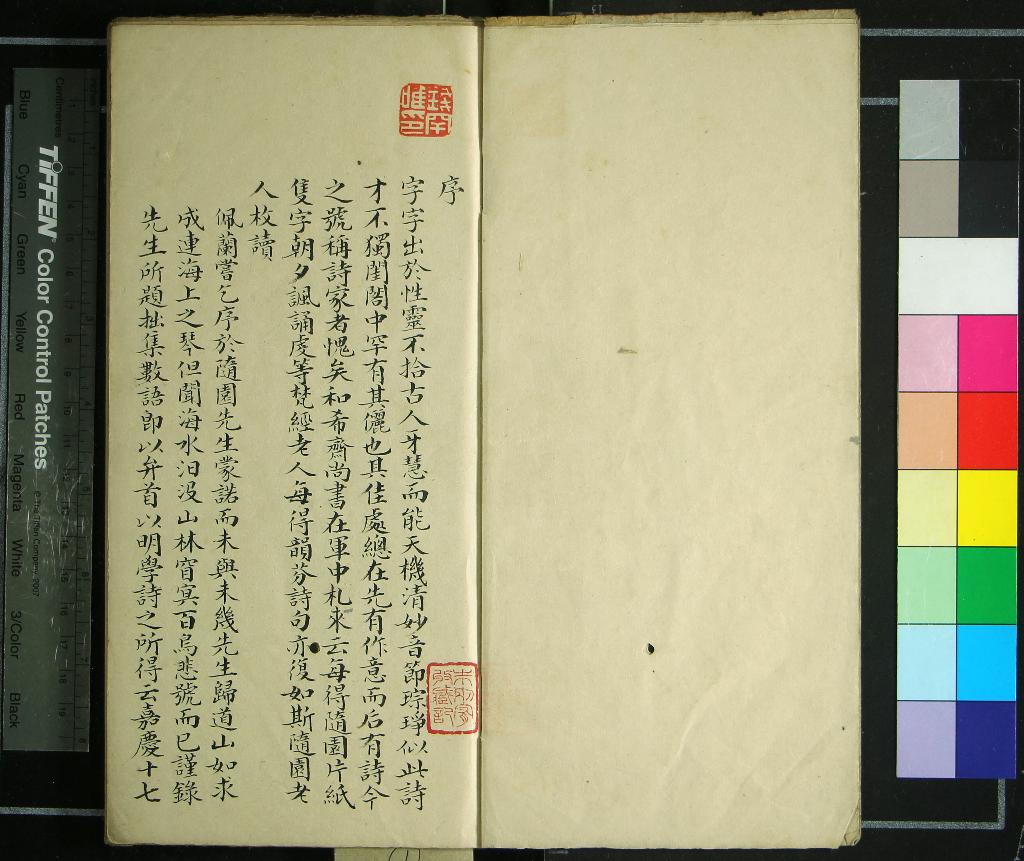 序
字字出於性靈不拾古人牙慧而能天機清妙音節琮琤似此詩
才不獨閨閤中罕有其儷也其佳處總在先有作意而后有詩今
之號稱詩家者愧矣和希齋尚書在軍中札來云每得隨園片紙
隻字朝夕諷誦虔等梵經老人每得韻芬詩句亦復如斯隨園老
人枚讀
佩蘭嘗乞序於隨園先生蒙諾而未與未幾先生歸道山如求
成連海上之琴但聞海水汩没山林窅冥百鳥悲號而已謹錄
先生所題拙集數語即以弁首以明學詩之所得云嘉慶十七
Centimetres
TIFFEN Color Control Patches
© The Tiffen Company, 2007
Blue Cyan Green Yellow Red Magenta White 3/Color Black